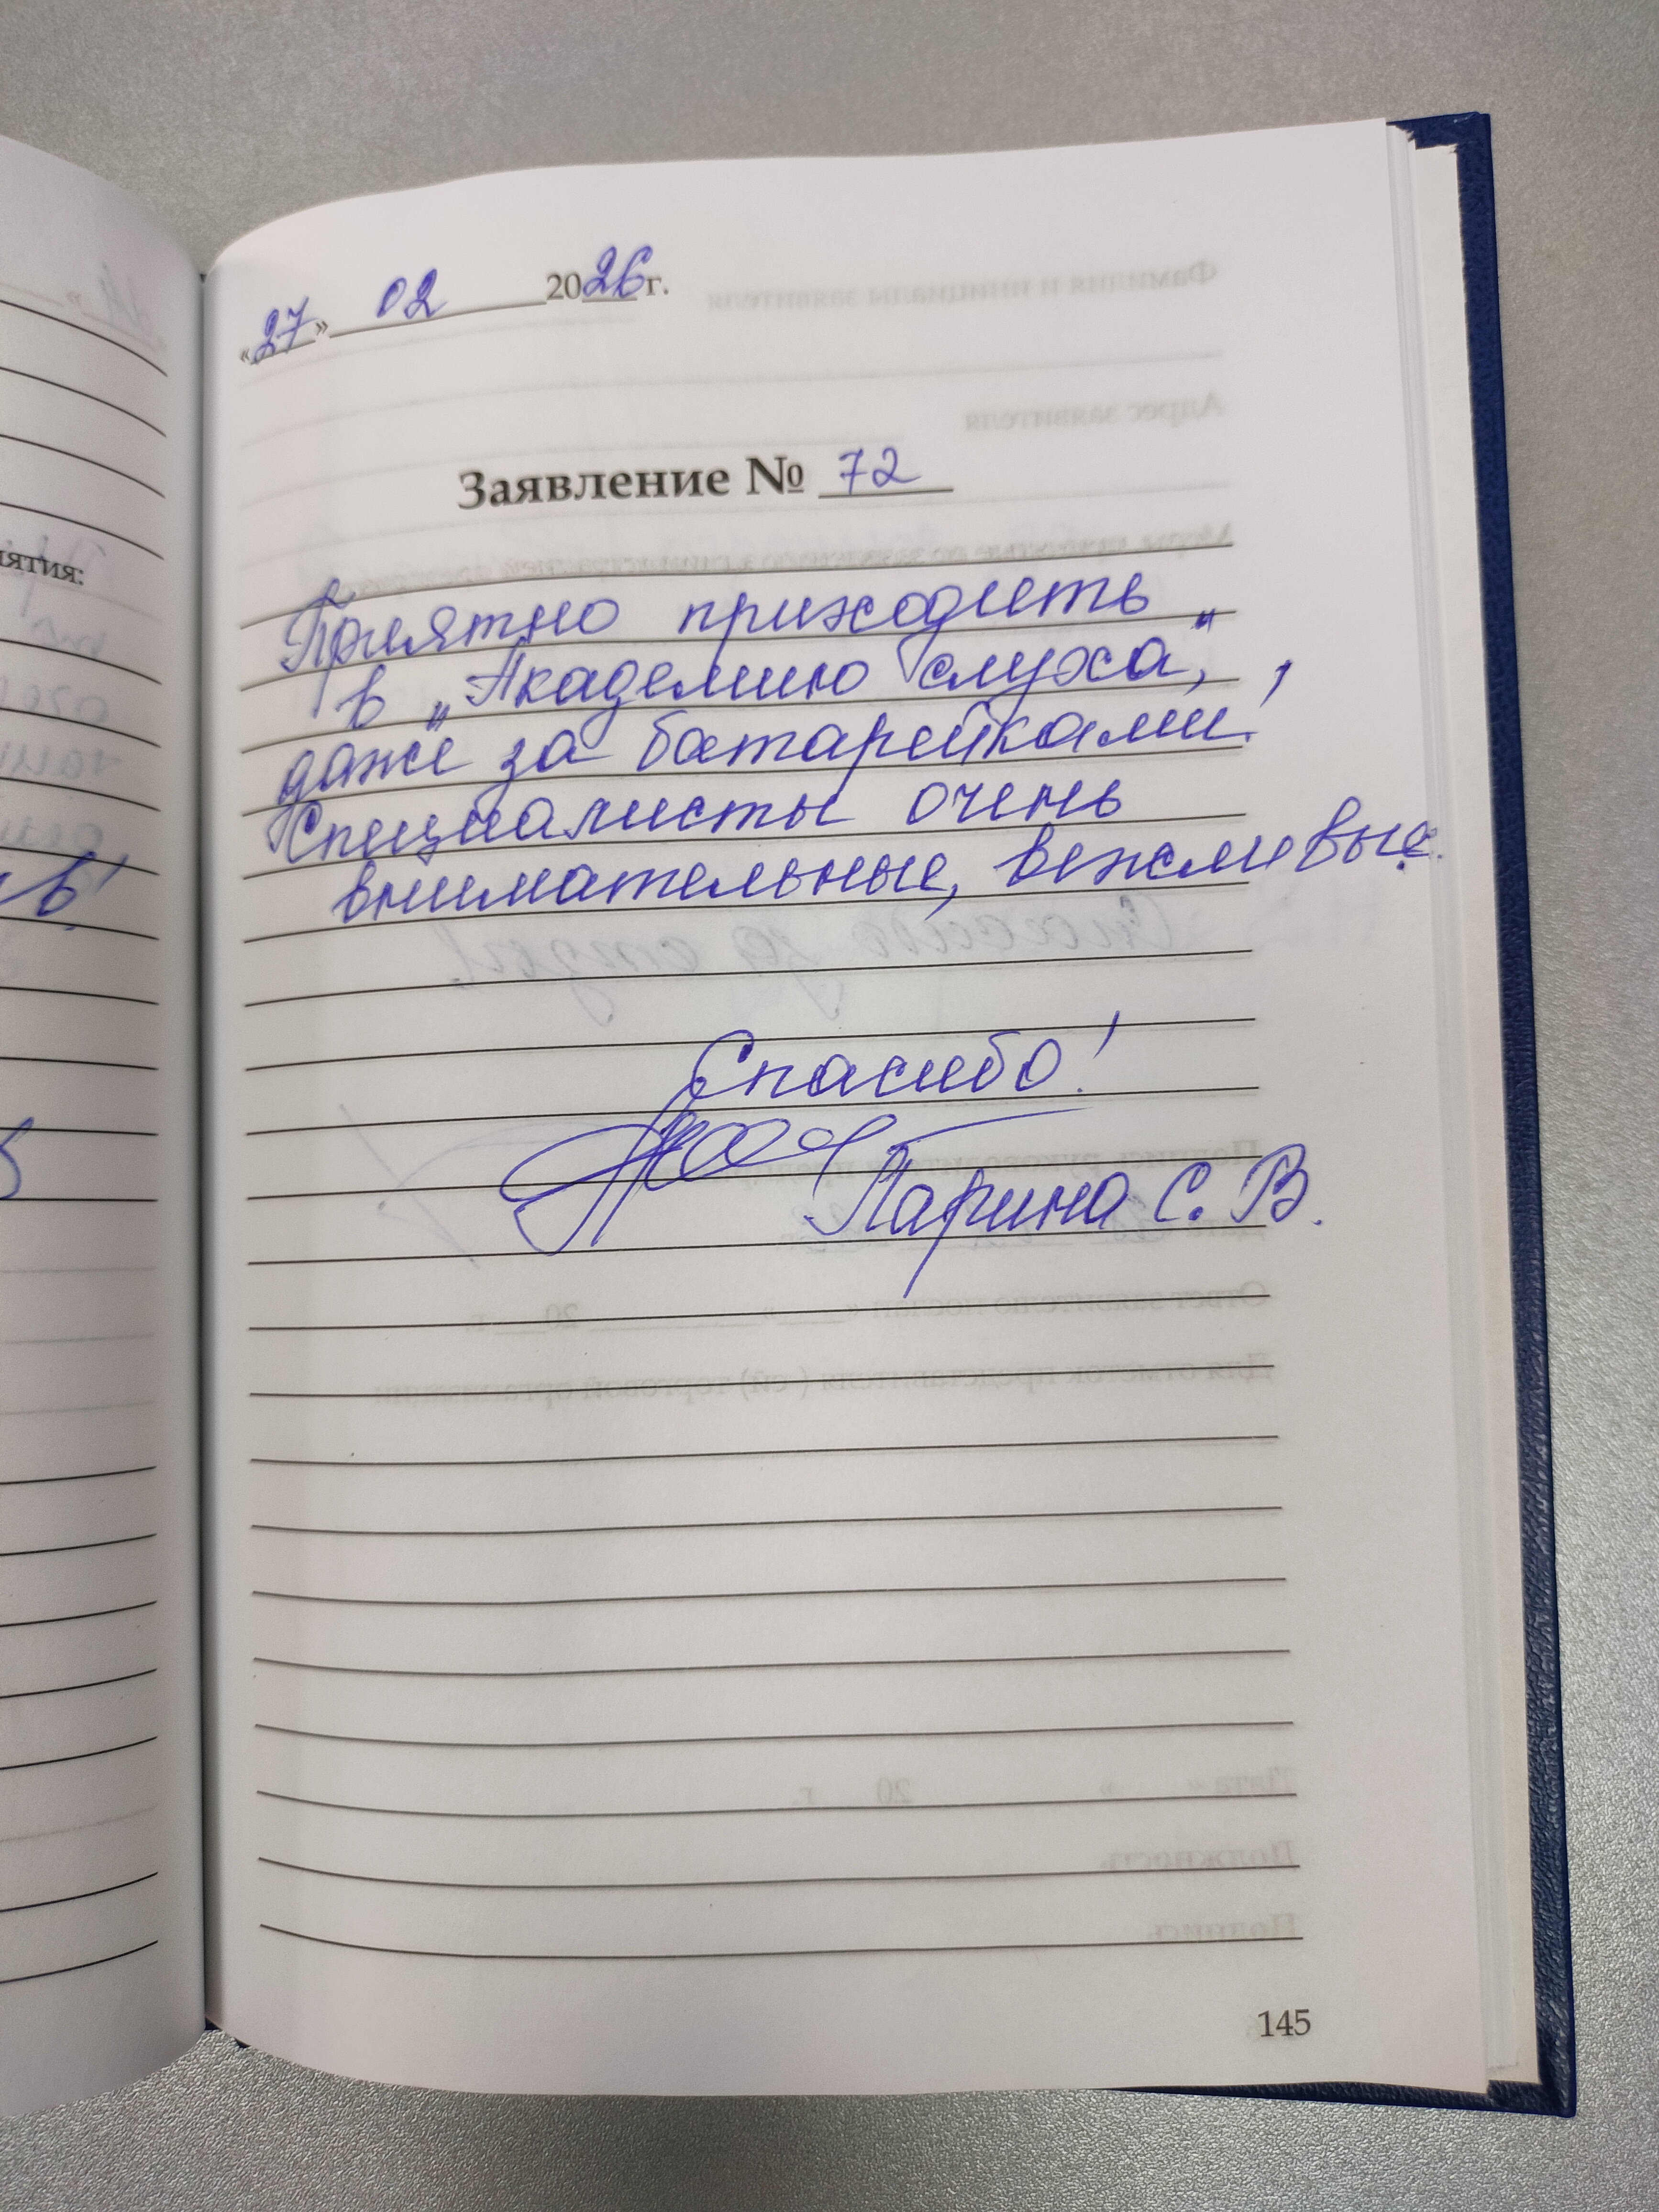 «27» 02 2026 г.
Заявление № 72
Приятно приходить
в „Академию слуха",
даже за батарейками!
Специалисты очень
внимательные, вежливые.
Спасибо!
Ларина С. В.
145
ятия: